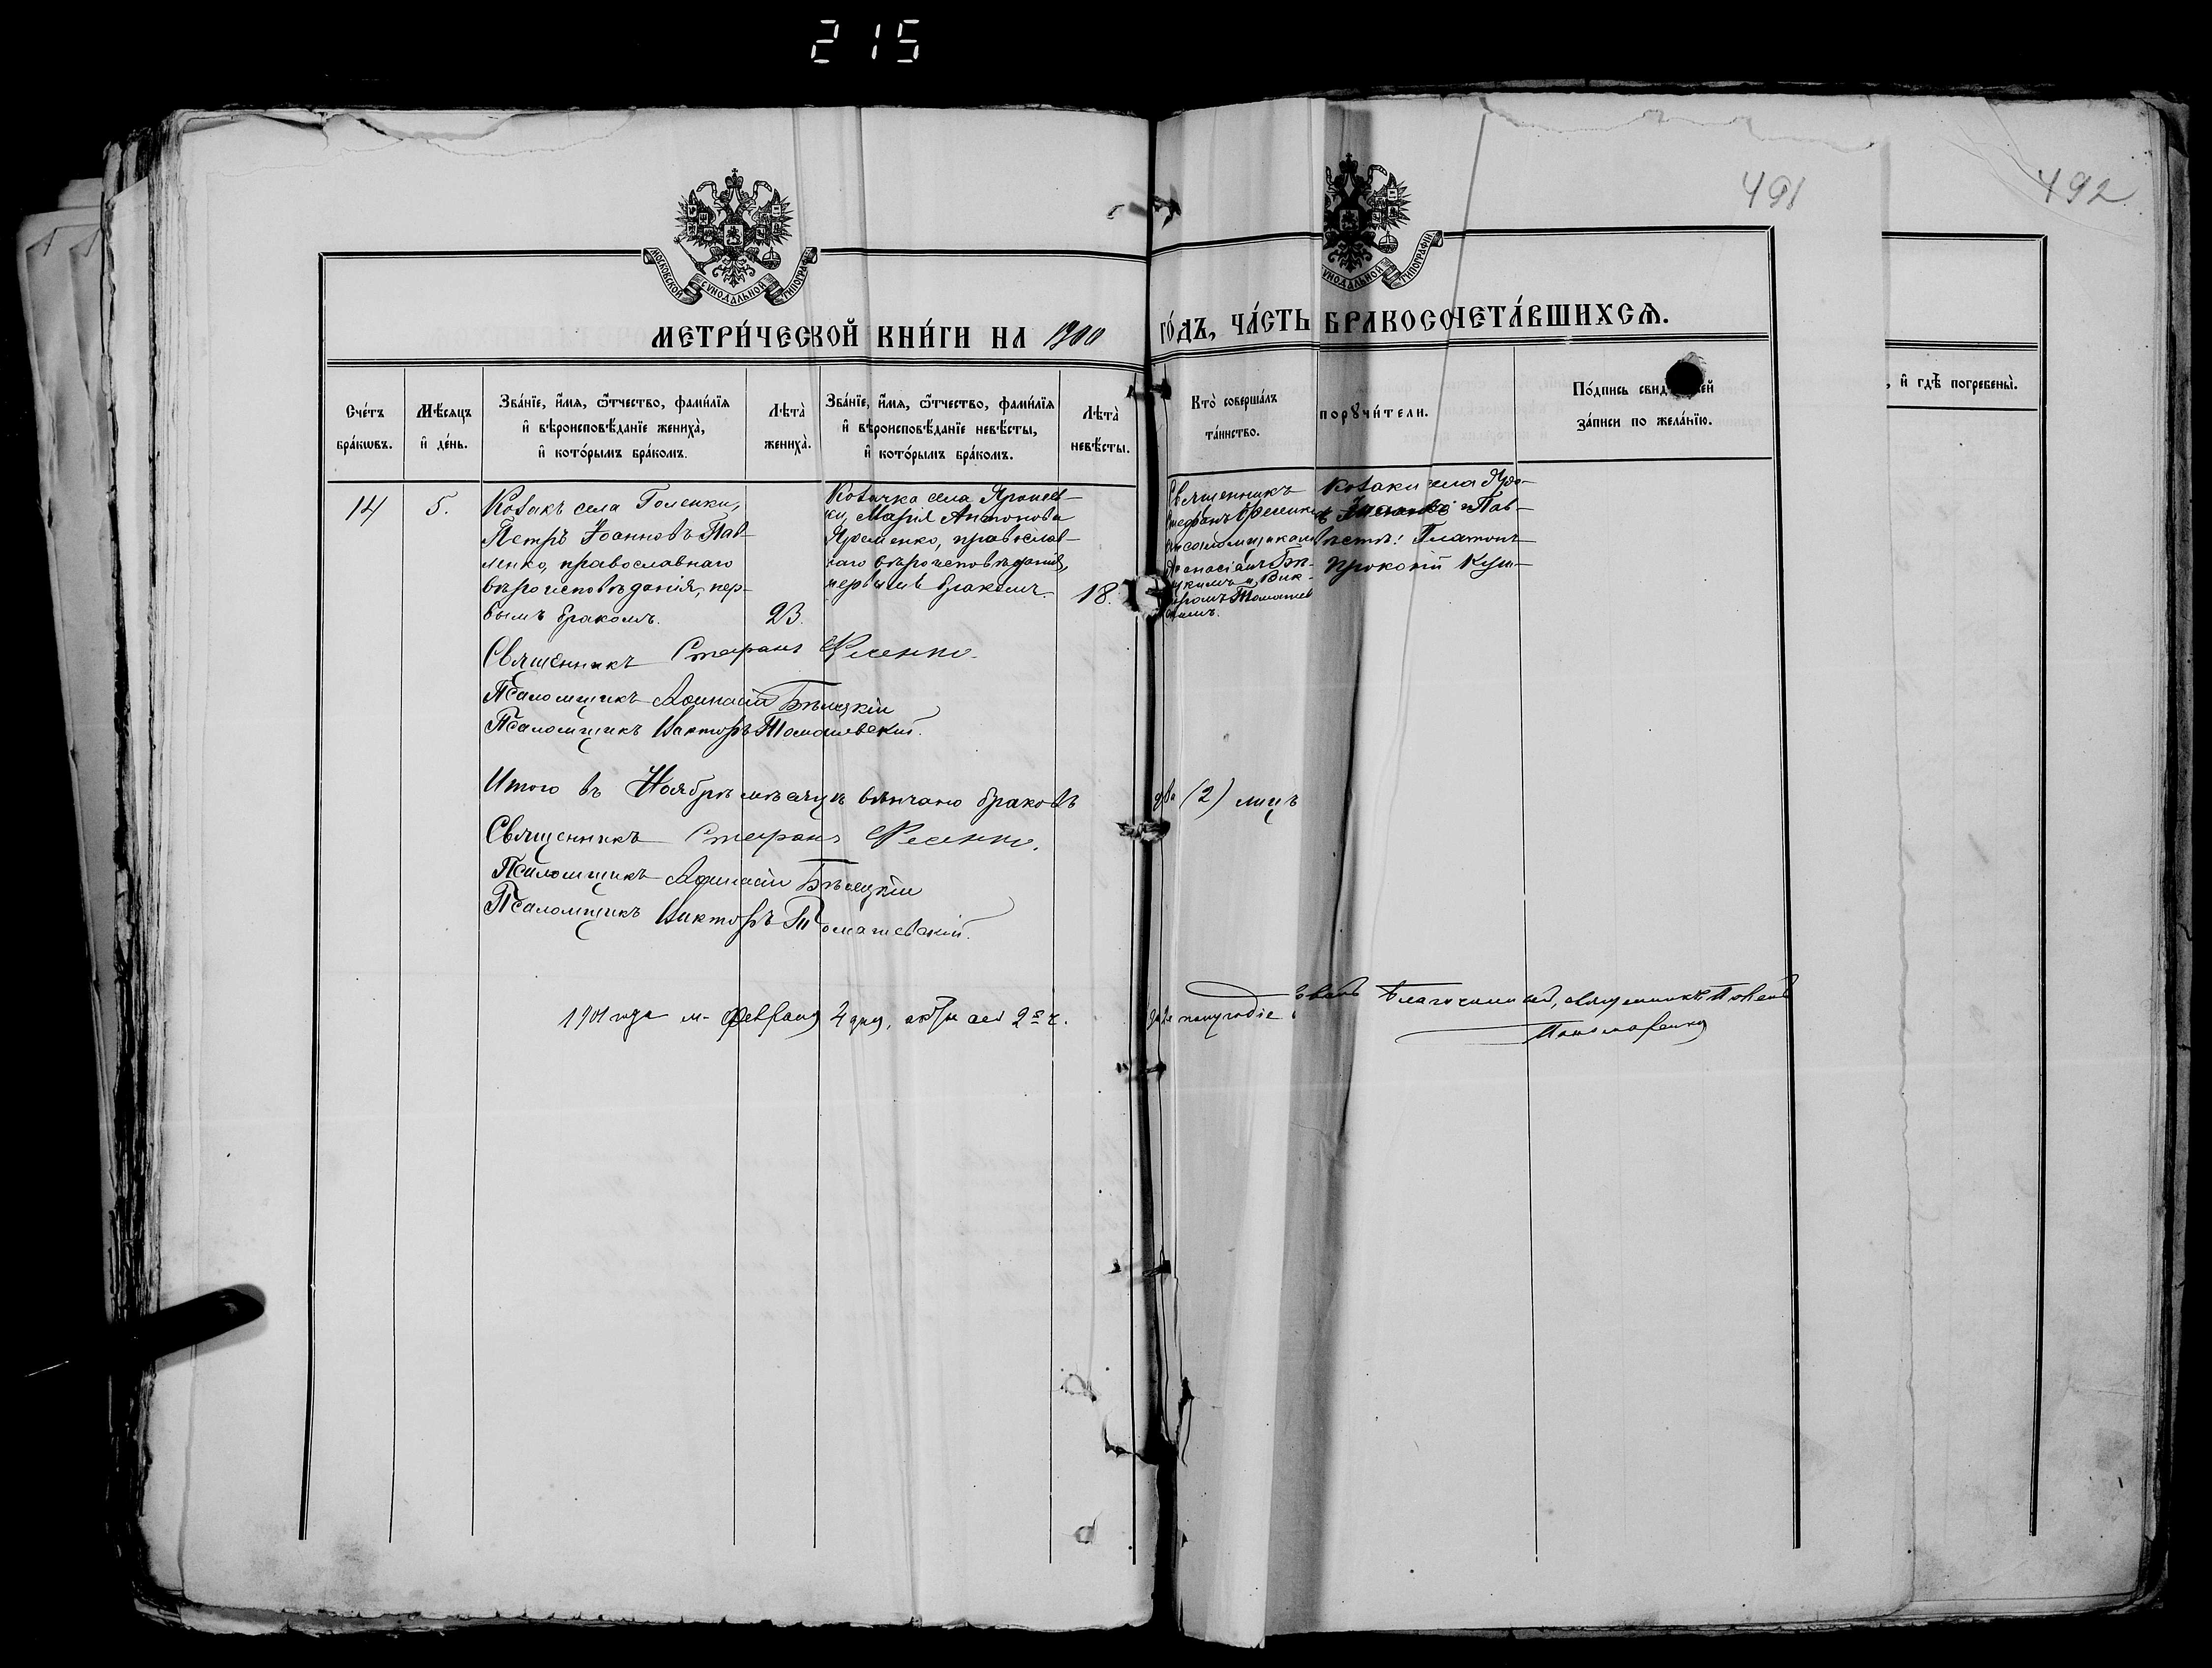 215
491
492
МОСКОВСКОЙ СѴНОДАЛЬНОЙ ТИПОГРАФІИ
СѴНОДАЛЬНОЙ ТИПОГРАФІИ
МЕТРИ́ЧЕСКОЙ КНИ́ГИ НА 1900
ГО́ДЪ, ЧА́СТЬ БРАКОСОЧЕТА́ВШИХСѦ.
Сче́тъ
бра́кѡвъ.
Мѣ́сяцъ
и҆ де́нь.
Зва́нїе, и҆́мя, ѻ҆́тчество, фами́лїя
и҆ вѣроисповѣ́данїе жениха̀,
и҆ кото́рымъ бра́комъ.
Лѣта̀
жениха̀.
Зва́нїе, и҆́мя, ѻ҆́тчество, фами́лїя
и҆ вѣроисповѣ́данїе невѣ́сты,
и҆ кото́рымъ бра́комъ.
Лѣта̀
невѣ́сты.
Кто̀ соверша́лъ
та́инство.
порꙋчи́тели.
По́дпись
за́писи по жела́нїю.
, и҆ гдѣ̀ погребены̀.
14
5.
Козакъ села Голенки,
Петръ Іоанновъ Пав-
ленко, православнаго
вѣроисповѣданія, пер-
вымъ бракомъ.
23.
Козачка села
Марія Антонова
Яременко, православ-
наго вѣроисповѣданія,
первымъ бракомъ.
18.
Священникъ
Стефанъ
Виктромъ Томашев
Козаки села
Пав-
Платонъ
Прокопій
Священникъ Стефанъ
Псаломщикъ Аѳанасій Бѣлецкій
Псаломщикъ Викторъ Томашевскій.
Итого въ Ноябрѣ мѣсяцѣ вѣнчано браковъ
два (2) лицъ
Священникъ Стефанъ
Псаломщикъ Аѳанасій Бѣлецкій
Псаломщикъ Викторъ Томашевскій.
1901 года м. Февраля 4 дня,
полугодіе
Благочинный, священникъ
Пономаренко